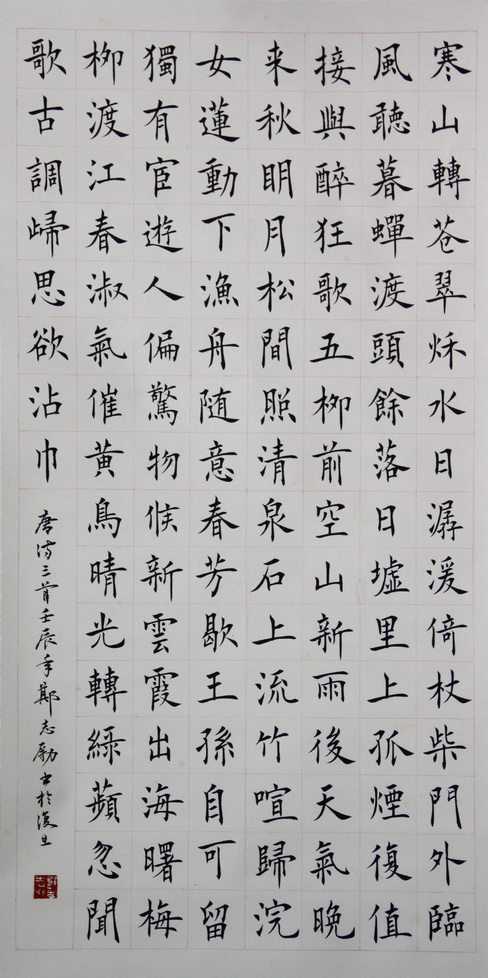 寒山轉苍翠秋水日潺湲倚杖柴門外臨
風聽暮蟬渡頭餘落日墟里上孤煙復值
接輿醉狂歌五柳前空山新雨後天氣晚
来秋明月松間照清泉石上流竹喧歸浣
女蓮動下漁舟随意春芳歇王孫自可留
獨有宦遊人偏驚物候新雲霞出海曙梅
柳渡江春淑氣催黄鳥晴光轉緑蘋忽聞
歌古調歸思欲沾巾
唐诗三首壬辰年鄭志勵书於復旦